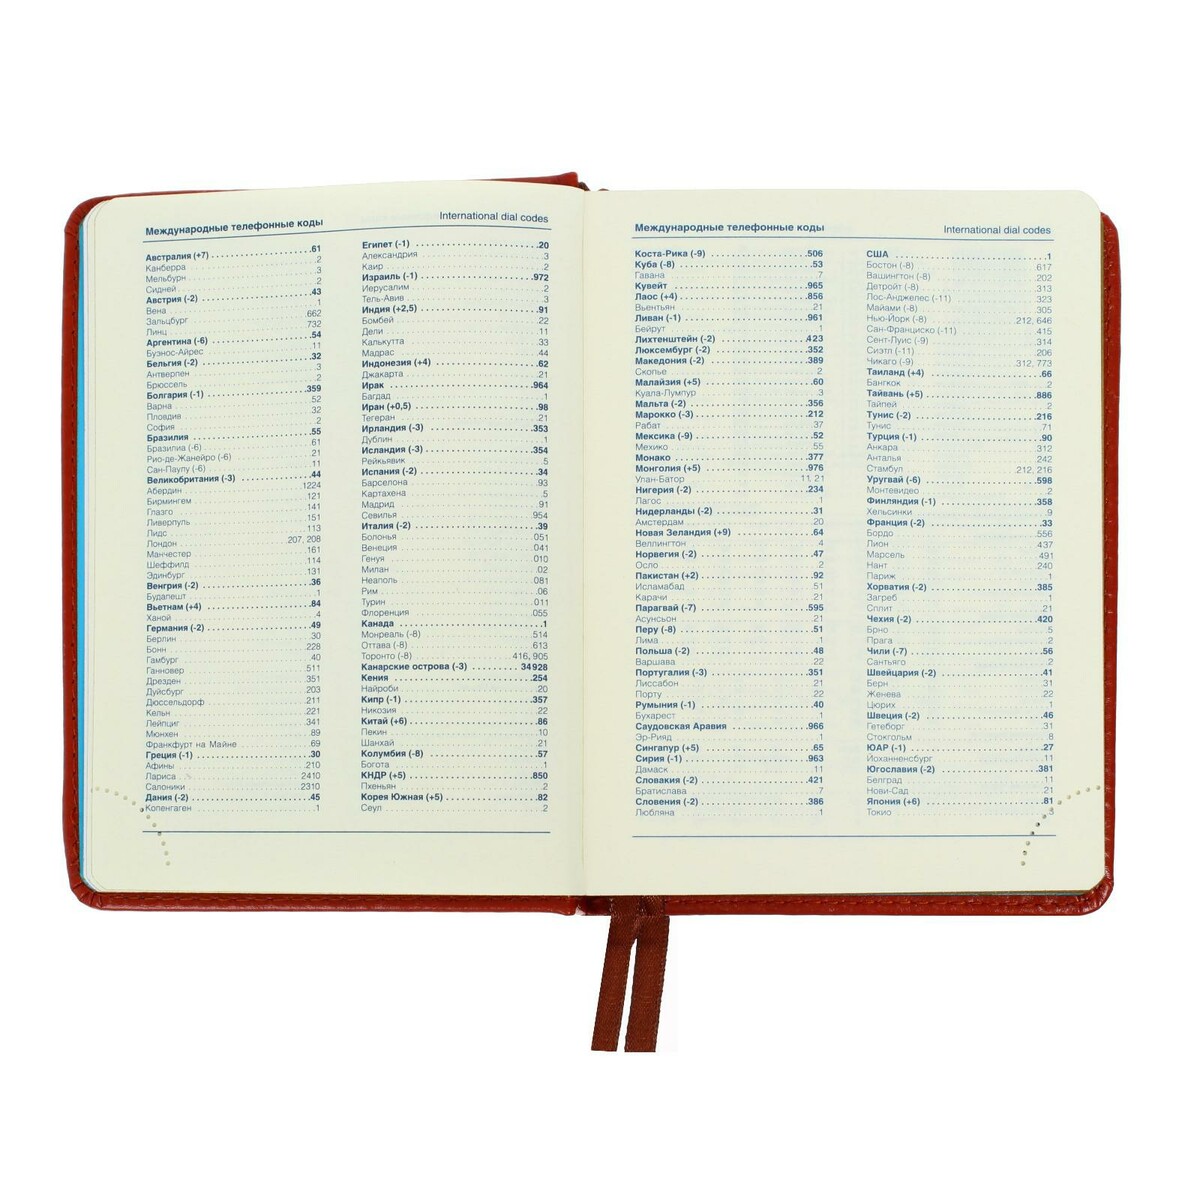 Международные телефонные коды International dial codes
Австралия (+7) 61
Канберра 2
Мельбурн 3
Сидней 2
Австрия (-2) 43
Вена 1
Зальцбург 662
Линц 732
Аргентина (-6) 54
Буэнос-Айрес 11
Бельгия (-2) 32
Антверпен 3
Брюссель 2
Болгария (-1) 359
Варна 52
Пловдив 32
София 2
Бразилия 55
Бразилиа (-6) 61
Рио-де-Жанейро (-6) 21
Сан-Паулу (-6) 11
Великобритания (-3) 44
Абердин 1224
Бирмингем 121
Глазго 141
Ливерпуль 151
Лидс 113
Лондон 207, 208
Манчестер 161
Шеффилд 114
Эдинбург 131
Венгрия (-2) 36
Будапешт 1
Вьетнам (+4) 84
Ханой 4
Германия (-2) 49
Берлин 30
Бонн 228
Гамбург 40
Ганновер 511
Дрезден 351
Дуйсбург 203
Дюссельдорф 211
Кельн 221
Лейпциг 341
Мюнхен 89
Франкфурт на Майне 69
Греция (-1) 30
Афины 210
Лариса 2410
Салоники 2310
Дания (-2) 45
Копенгаген 1
Египет (-1) 20
Александрия 3
Каир 2
Израиль (-1) 972
Иерусалим 2
Тель-Авив 3
Индия (+2,5) 91
Бомбей 22
Дели 11
Калькутта 33
Мадрас 44
Индонезия (+4) 62
Джакарта 21
Ирак 964
Багдад 1
Иран (+0,5) 98
Тегеран 21
Ирландия (-3) 353
Дублин 1
Исландия (-3) 354
Рейкьявик 5
Испания (-2) 34
Барселона 93
Картахена 5
Мадрид 91
Севилья 954
Италия (-2) 39
Болонья 051
Венеция 041
Генуя 010
Милан 02
Неаполь 081
Рим 06
Турин 011
Флоренция 055
Канада 1
Монреаль (-8) 514
Оттава (-8) 613
Торонто (-8) 416, 905
Канарские острова (-3) 34 928
Кения 254
Найроби 20
Кипр (-1) 357
Никозия 22
Китай (+6) 86
Пекин 10
Шанхай 21
Колумбия (-8) 57
Богота 1
КНДР (+5) 850
Пхеньян 2
Корея Южная (+5) 82
Сеул 2
Международные телефонные коды International dial codes
Коста-Рика (-9) 506
Куба (-8) 53
Гавана 7
Кувейт 965
Лаос (+4) 856
Вьентьян 21
Ливан (-1) 961
Бейрут 1
Лихтенштейн (-2) 423
Люксембург (-2) 352
Македония (-2) 389
Скопье 2
Малайзия (+5) 60
Куала-Лумпур 3
Мальта (-2) 356
Марокко (-3) 212
Рабат 37
Мексика (-9) 52
Мехико 55
Монако 377
Монголия (+5) 976
Улан-Батор 11, 21
Нигерия (-2) 234
Лагос 1
Нидерланды (-2) 31
Амстердам 20
Новая Зеландия (+9) 64
Веллингтон 4
Норвегия (-2) 47
Осло 2
Пакистан (+2) 92
Исламабад 51
Карачи 21
Парагвай (-7) 595
Асунсьон 21
Перу (-8) 51
Лима 1
Польша (-2) 48
Варшава 22
Португалия (-3) 351
Лиссабон 21
Порту 22
Румыния (-1) 40
Бухарест 1
Саудовская Аравия 966
Эр-Рияд 1
Сингапур (+5) 65
Сирия (-1) 963
Дамаск 11
Словакия (-2) 421
Братислава 7
Словения (-2) 386
Любляна 1
США 1
Бостон (-8) 617
Вашингтон (-8) 202
Детройт (-8) 313
Лос-Анджелес (-11) 323
Майами (-8) 305
Нью-Йорк (-8) 212, 646
Сан-Франциско (-11) 415
Сент-Луис (-9) 314
Сиэтл (-11) 206
Чикаго (-9) 312, 773
Таиланд (+4) 66
Бангкок 2
Тайвань (+5) 886
Тайпей 2
Тунис (-2) 216
Тунис 71
Турция (-1) 90
Анкара 312
Анталья 242
Стамбул 212, 216
Уругвай (-6) 598
Монтевидео 2
Финляндия (-1) 358
Хельсинки 9
Франция (-2) 33
Бордо 556
Лион 437
Марсель 491
Нант 240
Париж 1
Хорватия (-2) 385
Загреб 1
Сплит 21
Чехия (-2) 420
Брно 5
Прага 2
Чили (-7) 56
Сантьяго 2
Швейцария (-2) 41
Берн 31
Женева 22
Цюрих 1
Швеция (-2) 46
Гетеборг 31
Стокгольм 8
ЮАР (-1) 27
Йоханненсбург 11
Югославия (-2) 381
Белград 11
Нови-Сад 21
Япония (+6) 81
Токио 3